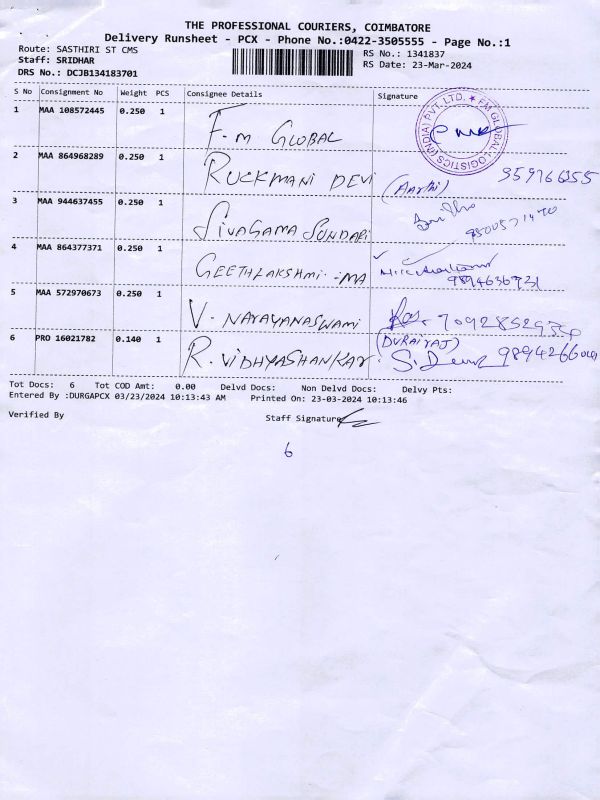 THE PROFESSIONAL COURIERS, COIMBATORE
Delivery Runsheet - PCX - Phone No.:0422-3505555 - Page No.:1
Route: SASTHIRI ST CMS
RS No.: 1341837
Staff: SRIDHAR
RS Date: 23-Mar-2024
DRS No.: DCJB134183701
S No Consignment No Weight PCS Consignee Details Signature
1 MAA 108572445 0.250 1 F.M GLOBAL
FM GLOBAL LOGISTICS (INDIA) PVT. LTD. ★
2 MAA 864968289 0.250 1 RUCKMANI DEVI (Aarthi)
3 MAA 944637455 0.250 1 SIVAGAMA SUNDARI
4 MAA 864377371 0.250 1 GEETHLAKSHMI .-MA 9894636931
5 MAA 572970673 0.250 1 V. NARAYANASWAMI
6 PRO 16021782 0.140 1 R. VIDHYASHANKAR. (DURAIRAJ)
Tot Docs: 6 Tot COD Amt: 0.00 Delvd Docs: Non Delvd Docs: Delvy Pts:
Entered By :DURGAPCX 03/23/2024 10:13:43 AM Printed On: 23-03-2024 10:13:46
Verified By Staff Signature
6